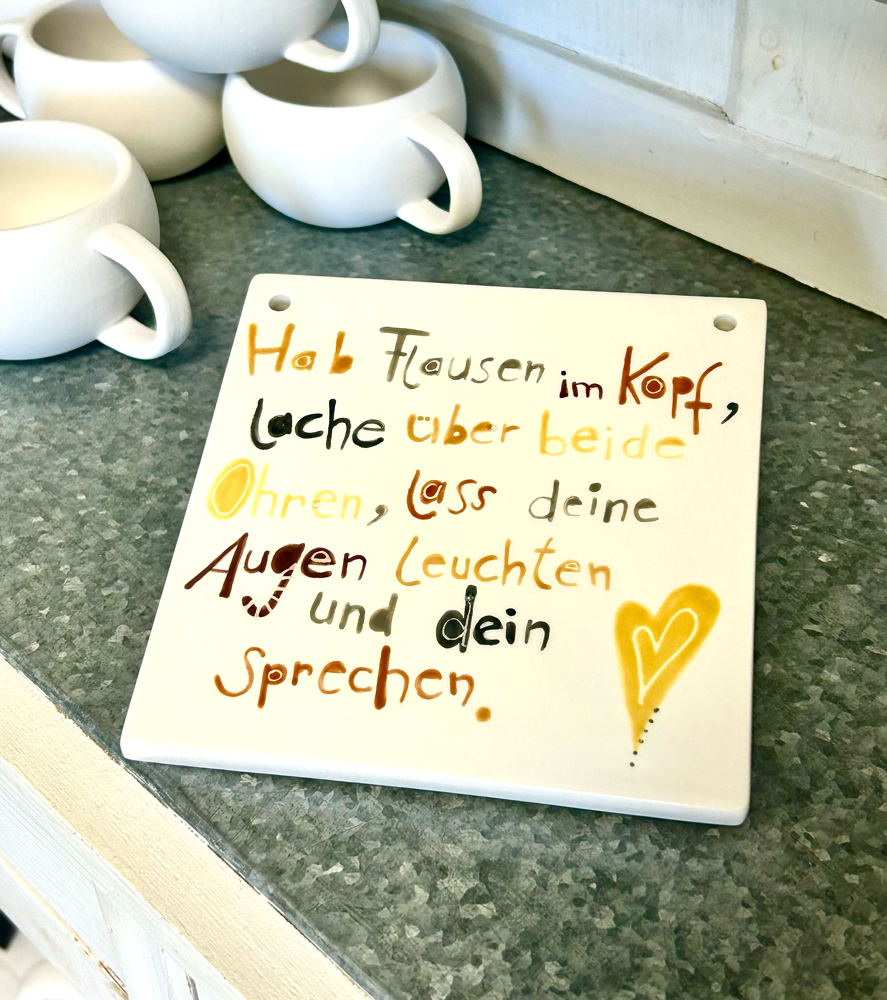 Hab Flausen im Kopf,
lache über beide
Ohren, lass deine
Augen leuchten
und dein
Sprechen.